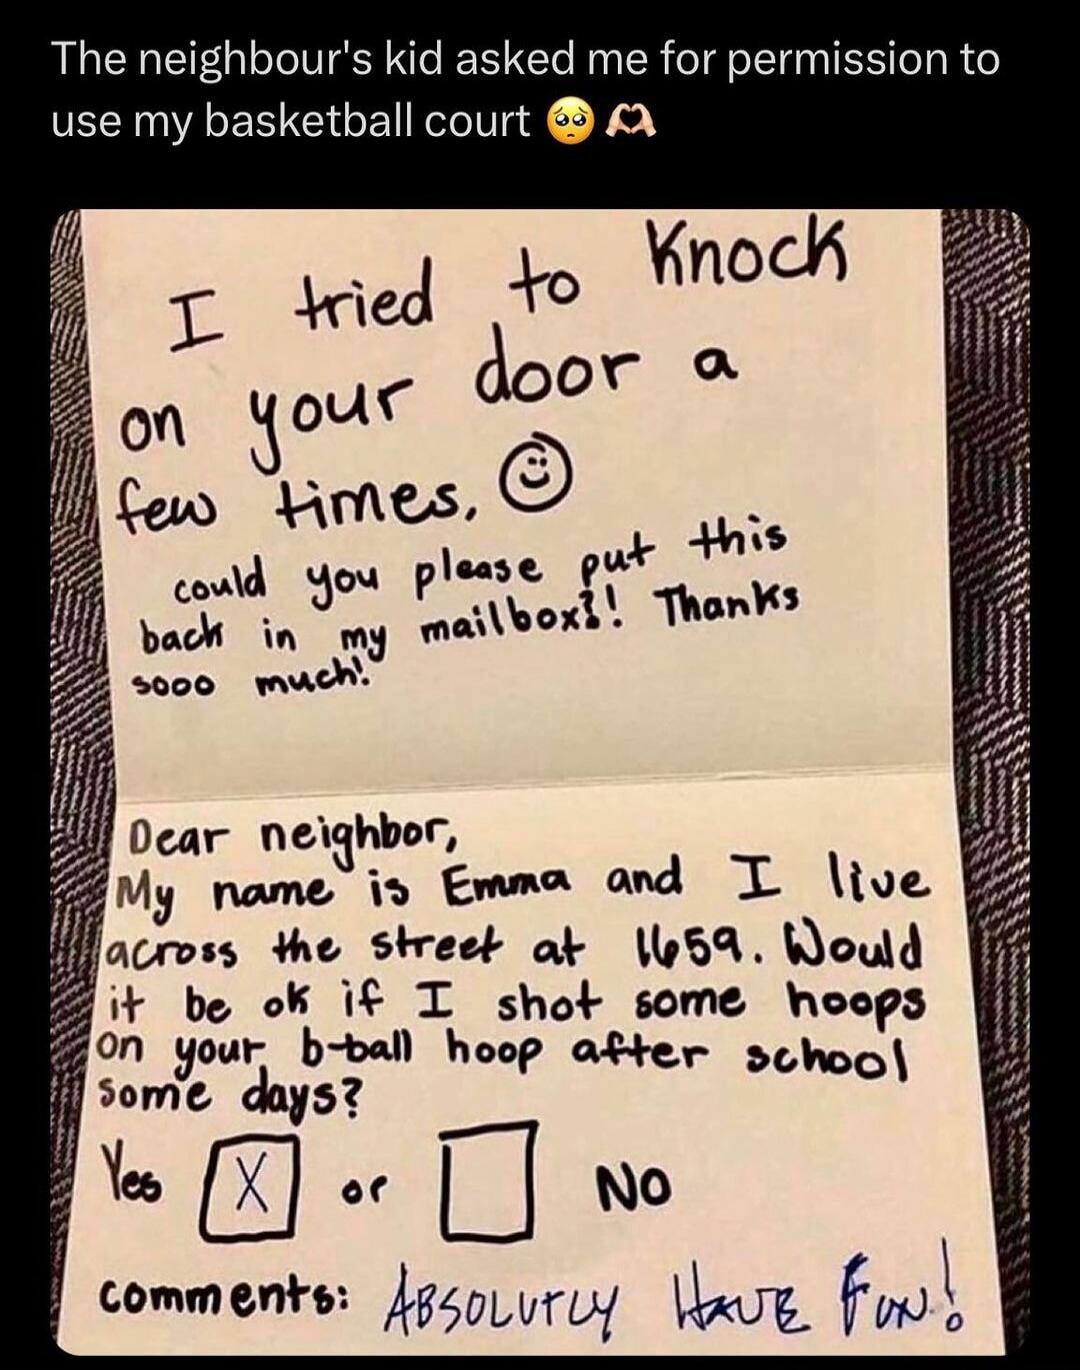 The neighbour's kid asked me for permission to
use my basketball court 🥺🫶🏻
I tried to Knock
on your door a
few times. ☺
could you please put this
back in my mailbox?! Thanks
sooo much!
Dear neighbor,
My name is Emma and I live
across the street at 1659. Would
it be ok if I shot some hoops
on your b-ball hoop after school
some days?
Yes [X] or [ ] NO
comments: ABSOLUTLY HAVE FUN!